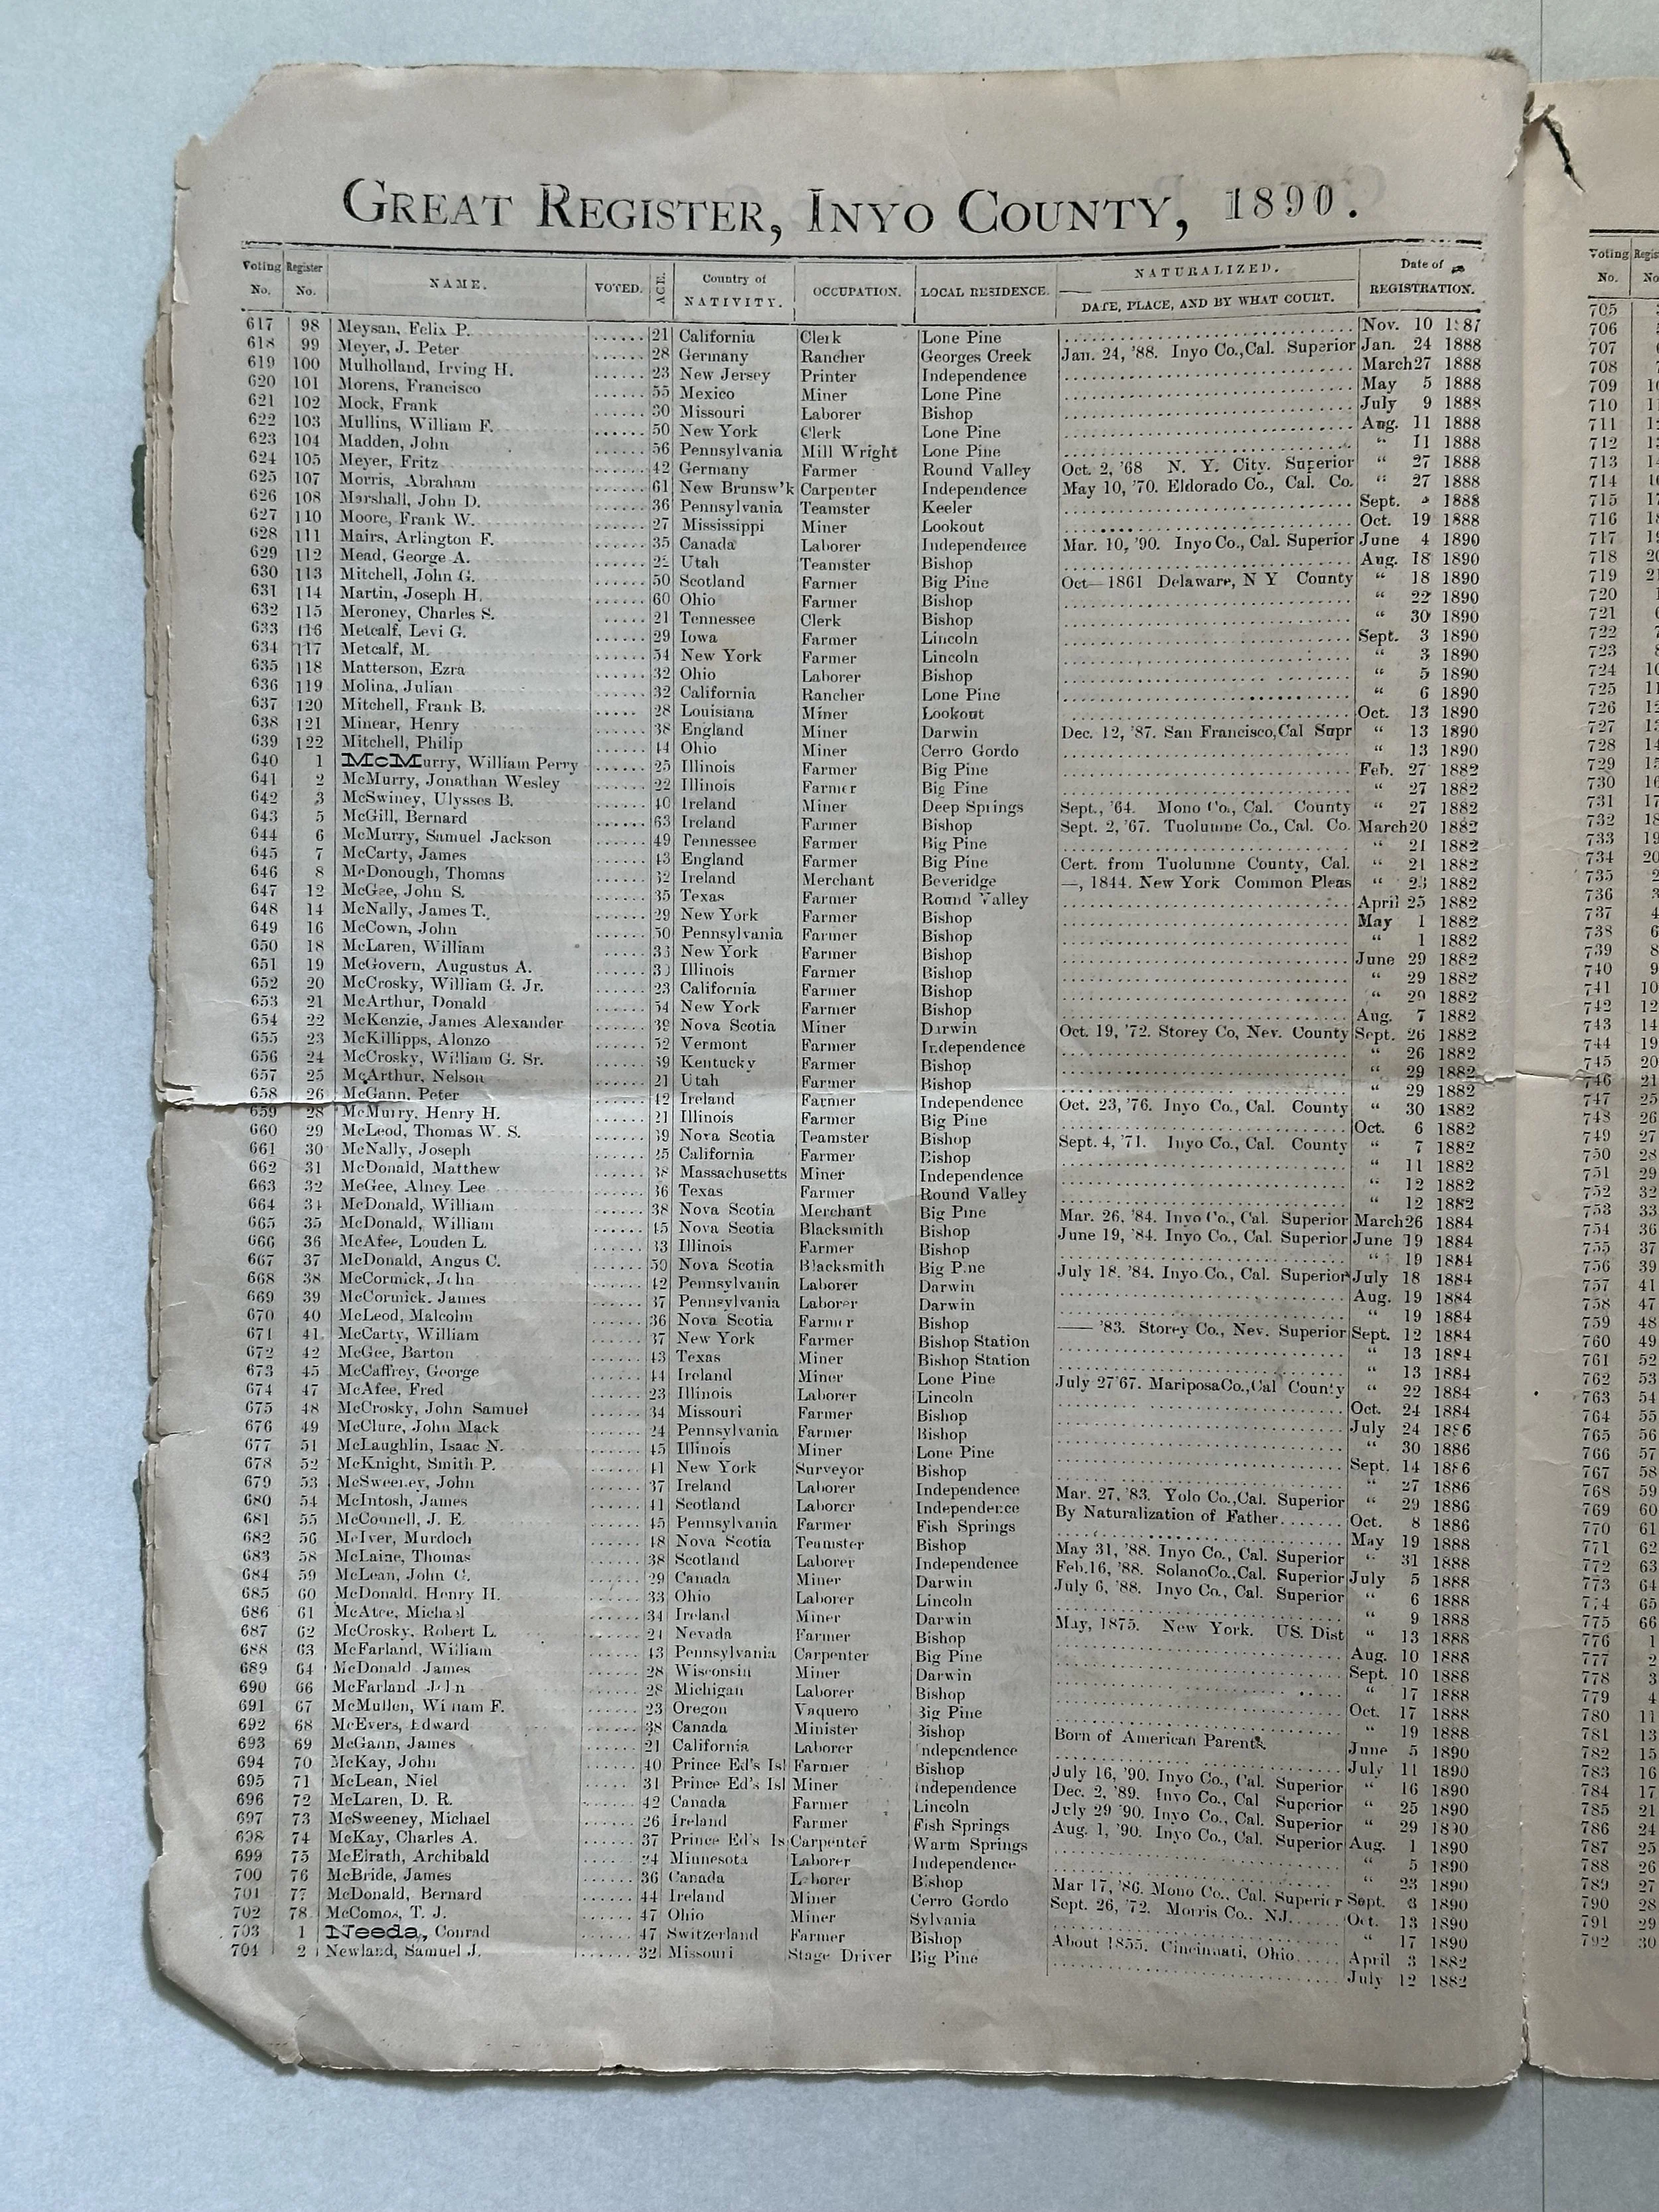 GREAT REGISTER, INYO COUNTY, 1890.
Voting No. Register No. NAME. VOTED. AGE. Country of NATIVITY. OCCUPATION. LOCAL RESIDENCE. NATURALIZED. DATE, PLACE, AND BY WHAT COURT. Date of REGISTRATION.
617 98 Meysan, Felix P. 21 California Clerk Lone Pine Nov. 10 1887
618 99 Meyer, J. Peter 28 Germany Rancher Georges Creek Jan. 24, '88. Inyo Co., Cal. Superior Jan. 24 1888
619 100 Mulholland, Irving H. 23 New Jersey Printer Independence March 27 1888
620 101 Morens, Francisco 55 Mexico Miner Lone Pine May 5 1888
621 102 Mock, Frank 30 Missouri Laborer Bishop July 9 1888
622 103 Mullins, William F. 50 New York Clerk Lone Pine Aug. 11 1888
623 104 Madden, John 56 Pennsylvania Mill Wright Lone Pine “ 11 1888
624 105 Meyer, Fritz 42 Germany Farmer Round Valley Oct. 2, '68 N. Y. City. Superior “ 27 1888
625 107 Morris, Abraham 61 New Brunsw'k Carpenter Independence May 10, '70. Eldorado Co., Cal. Co. “ 27 1888
626 108 Marshall, John D. 36 Pennsylvania Teamster Keeler Sept. 1888
627 110 Moore, Frank W. 27 Mississippi Miner Lookout Oct. 19 1888
628 111 Mairs, Arlington F. 35 Canada Laborer Independence Mar. 10, '90. Inyo Co., Cal. Superior June 4 1890
629 112 Mead, George A. Utah Teamster Bishop Aug. 18 1890
630 113 Mitchell, John G. 50 Scotland Farmer Big Pine Oct—1861 Delaware, N Y County “ 18 1890
631 114 Martin, Joseph H. 60 Ohio Farmer Bishop “ 22 1890
632 115 Meroney, Charles S. 21 Tennessee Clerk Bishop “ 30 1890
633 116 Metcalf, Levi G. 29 Iowa Farmer Lincoln Sept. 3 1890
634 117 Metcalf, M. 54 New York Farmer Lincoln “ 3 1890
635 118 Matterson, Ezra 32 Ohio Laborer Bishop “ 5 1890
636 119 Molina, Julian 32 California Rancher Lone Pine “ 6 1890
637 120 Mitchell, Frank B. 28 Louisiana Miner Lookout Oct. 13 1890
638 121 Minear, Henry 38 England Miner Darwin Dec. 12, '87. San Francisco, Cal Supr “ 13 1890
639 122 Mitchell, Philip 44 Ohio Miner Cerro Gordo “ 13 1890
640 1 McMurry, William Perry 25 Illinois Farmer Big Pine Feb. 27 1882
641 2 McMurry, Jonathan Wesley 22 Illinois Farmer Big Pine “ 27 1882
642 3 McSwiney, Ulysses B. 40 Ireland Miner Deep Springs Sept., '64. Mono Co., Cal. County “ 27 1882
643 5 McGill, Bernard 63 Ireland Farmer Bishop Sept. 2, '67. Tuolumne Co., Cal. Co. March 20 1882
644 6 McMurry, Samuel Jackson 49 Tennessee Farmer Big Pine “ 21 1882
645 7 McCarty, James 43 England Farmer Big Pine Cert. from Tuolumne County, Cal. “ 21 1882
646 8 McDonough, Thomas 52 Ireland Merchant Beveridge —, 1844. New York Common Pleas “ 23 1882
647 12 McGee, John S. 35 Texas Farmer Round Valley April 25 1882
648 14 McNally, James T. 29 New York Farmer Bishop May 1 1882
649 16 McCown, John 50 Pennsylvania Farmer Bishop “ 1 1882
650 18 McLaren, William 33 New York Farmer Bishop June 29 1882
651 19 McGovern, Augustus A. 30 Illinois Farmer Bishop “ 29 1882
652 20 McCrosky, William G. Jr. 23 California Farmer Bishop “ 29 1882
653 21 McArthur, Donald 54 New York Farmer Bishop Aug. 7 1882
654 22 McKenzie, James Alexander 39 Nova Scotia Miner Darwin Oct. 19, '72. Storey Co, Nev. County Sept. 26 1882
655 23 McKillipps, Alonzo 52 Vermont Farmer Independence “ 26 1882
656 24 McCrosky, William G. Sr. 59 Kentucky Farmer Bishop “ 29 1882
657 25 McArthur, Nelson 21 Utah Farmer Bishop “ 29 1882
658 26 McGann, Peter 42 Ireland Farmer Independence Oct. 23, '76. Inyo Co., Cal. County “ 30 1882
659 28 McMurry, Henry H. 21 Illinois Farmer Big Pine Oct. 6 1882
660 29 McLeod, Thomas W. S. 39 Nova Scotia Teamster Bishop Sept. 4, '71. Inyo Co., Cal. County “ 7 1882
661 30 McNally, Joseph 25 California Farmer Bishop “ 11 1882
662 31 McDonald, Matthew 38 Massachusetts Miner Independence “ 12 1882
663 32 McGee, Alney Lee 36 Texas Farmer Round Valley “ 12 1882
664 34 McDonald, William 38 Nova Scotia Merchant Big Pine Mar. 26, '84. Inyo Co., Cal. Superior March 26 1884
665 35 McDonald, William 45 Nova Scotia Blacksmith Bishop June 19, '84. Inyo Co., Cal. Superior June 19 1884
666 36 McAfee, Louden L. 33 Illinois Farmer Bishop “ 19 1884
667 37 McDonald, Angus C. 50 Nova Scotia Blacksmith Big Pine July 18, '84. Inyo Co., Cal. Superior July 18 1884
668 38 McCormick, John 42 Pennsylvania Laborer Darwin Aug. 19 1884
669 39 McCormick, James 37 Pennsylvania Laborer Darwin “ 19 1884
670 40 McLeod, Malcolm 36 Nova Scotia Farmer Bishop —— '83. Storey Co., Nev. Superior Sept. 12 1884
671 41 McCarty, William 37 New York Farmer Bishop Station “ 13 1884
672 42 McGee, Barton 43 Texas Miner Bishop Station “ 13 1884
673 45 McCaffrey, George 44 Ireland Miner Lone Pine July 27'67. Mariposa Co., Cal County “ 22 1884
674 47 McAfee, Fred 23 Illinois Laborer Lincoln Oct. 24 1884
675 48 McCrosky, John Samuel 34 Missouri Farmer Bishop July 24 1886
676 49 McClure, John Mack 24 Pennsylvania Farmer Bishop “ 30 1886
677 51 McLaughlin, Isaac N. 45 Illinois Miner Lone Pine Sept. 14 1886
678 52 McKnight, Smith P. 41 New York Surveyor Bishop “ 27 1886
679 53 McSweeney, John 37 Ireland Laborer Independence Mar. 27, '83. Yolo Co., Cal. Superior “ 29 1886
680 54 McIntosh, James 41 Scotland Laborer Independence By Naturalization of Father Oct. 8 1886
681 55 McConnell, J. E. 45 Pennsylvania Farmer Fish Springs May 19 1888
682 56 McIver, Murdoch 48 Nova Scotia Teamster Bishop May 31, '88. Inyo Co., Cal. Superior “ 31 1888
683 58 McLaine, Thomas 38 Scotland Laborer Independence Feb. 16, '88. Solano Co., Cal. Superior July 5 1888
684 59 McLean, John C. 29 Canada Miner Darwin July 6, '88. Inyo Co., Cal. Superior “ 6 1888
685 60 McDonald, Henry H. 33 Ohio Laborer Lincoln “ 9 1888
686 61 McAtee, Michael 34 Ireland Miner Darwin May, 1875. New York. US. Dist “ 13 1888
687 62 McCrosky, Robert L. 21 Nevada Farmer Bishop Aug. 10 1888
688 63 McFarland, William 43 Pennsylvania Carpenter Big Pine Sept. 10 1888
689 64 McDonald, James 28 Wisconsin Miner Darwin “ 17 1888
690 66 McFarland John 28 Michigan Laborer Bishop Oct. 17 1888
691 67 McMullen, William F. 23 Oregon Vaquero Big Pine “ 19 1888
692 68 McEvers, Edward 38 Canada Minister Bishop Born of American Parents. June 5 1890
693 69 McGann, James 21 California Laborer Independence July 11 1890
694 70 McKay, John 40 Prince Ed's Isl Farmer Bishop July 16, '90. Inyo Co., Cal. Superior “ 16 1890
695 71 McLean, Niel 31 Prince Ed's Isl Miner Independence Dec. 2, '89. Inyo Co., Cal Superior “ 25 1890
696 72 McLaren, D. R. 42 Canada Farmer Lincoln July 29 '90. Inyo Co., Cal. Superior “ 29 1890
697 73 McSweeney, Michael 26 Ireland Farmer Fish Springs Aug. 1, '90. Inyo Co., Cal. Superior Aug. 1 1890
698 74 McKay, Charles A. 37 Prince Ed's Is Carpenter Warm Springs “ 5 1890
699 75 McElrath, Archibald 24 Minnesota Laborer Independence “ 23 1890
700 76 McBride, James 36 Canada Laborer Bishop Mar 17, '86. Mono Co., Cal. Superior Sept. 3 1890
701 77 McDonald, Bernard 44 Ireland Miner Cerro Gordo Sept. 26, '72. Morris Co., NJ. Oct. 13 1890
702 78 McComos, T. J. 47 Ohio Miner Sylvania “ 17 1890
703 1 Needa, Conrad 47 Switzerland Farmer Bishop About 1855. Cincinnati, Ohio April 3 1882
704 2 Newland, Samuel J. 32 Missouri Stage Driver Big Pine July 12 1882
Voting No.
705
706
707
708
709
710
711
712
713
714
715
716
717
718
719
720
721
722
723
724
725
726
727
728
729
730
731
732
733
734
735
736
737
738
739
740
741
742
743
744
745
746
747
748
749
750
751
752
753
754
755
756
757
758
759
760
761
762
763
764
765
766
767
768
769
770
771
772
773
774
775
776
777
778
779
780
781
782
783
784
785
786
787
788
789
790
791
792